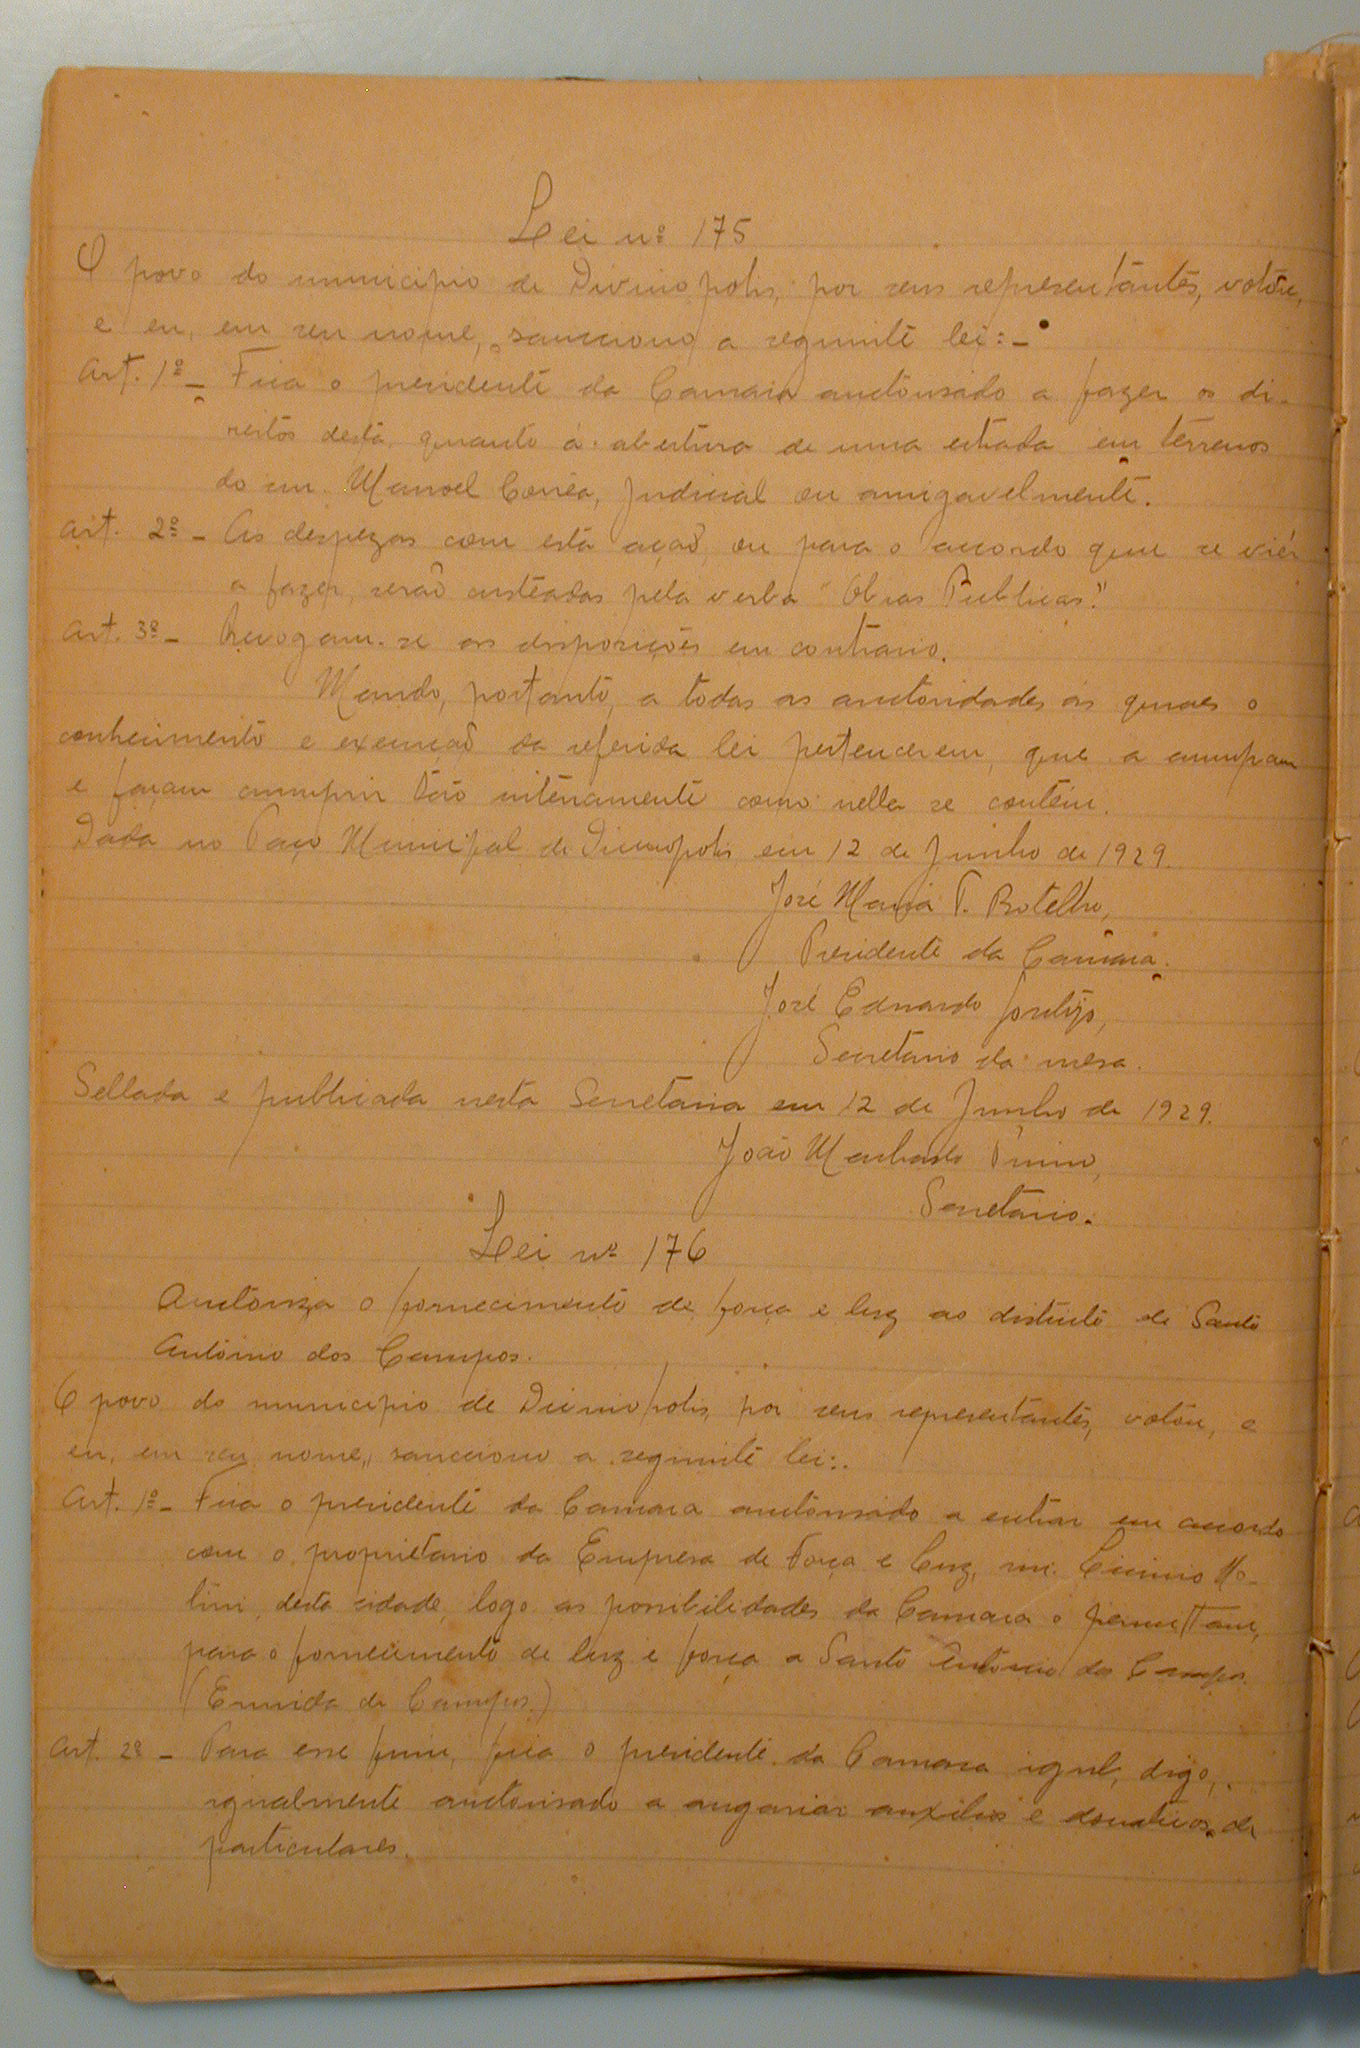 Lei nº 175
O povo do municipio de Divinopolis, por seus representantes, votou,
e eu, em seu nome, sancciono a seguinte lei:-
Art. 1º- Fica o presidente da Camara auctorisado a fazer os di-
reitos desta, quanto á abertura de uma estrada em terrenos
do snr. Manoel Corrêa, judicial ou amigavelmente.
Art. 2º- As despezas com esta ação, ou para o accordo que se viér
a fazer, serão custeadas pela verba "Obras Publicas."
Art. 3º- Revogam-se as disposições em contrario.
Mando, portanto, a todas as auctoridades ás quaes o
conhecimento e execução da referida lei pertencerem, que a cumpram
e façam cumprir tão inteiramente como nella se contém.
Dada no Paço Municipal de Divinopolis em 12 de Junho de 1929.
José Maria P. Botelho,
Presidente da Camara.
José Eduardo
Secretario da mesa.
Sellada e publicada nesta Secretaria em 12 de Junho de 1929.
João Machado
Secretario.
Lei nº 176
Auctoriza o fornecimento de força e luz ao districto de Santo
Antonio dos Campos.
O povo do municipio de Divinopolis, por seus representantes, votou, e
eu, em seu nome, sancciono a seguinte lei:.
Art. 1º- Fica o presidente da Camara auctorisado a entrar em accordo
com o proprietario da Empresa de Força e Luz, snr. Licinio No-
tini, desta cidade, logo as possibilidades da Camara o permittam,
para o fornecimento de luz e força a Santo Antonio dos Campos.
(Ermida de Campos.)
Art. 2º- Para esse fim, fica o presidente da Camara igual, digo,
igualmente auctorisado a angariar auxilios e donativos de
particulares.